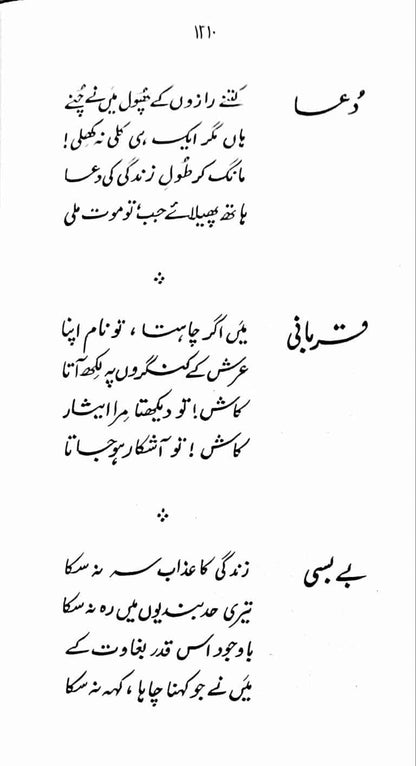 ۱۲۱۰
دُعا
کتنے رازوں کے پھول میں نے چُنے
ہاں مگر ایک ہی کلی نہ کھلی!
مانگ کر طُولِ زندگی کی دعا
ہاتھ پھیلائے جب، تو موت ملی
قربانی
میں اگر چاہتا، تو نام اپنا
عرش کے کنگروں پہ لِکھ آتا
کاش! تو دیکھتا مِرا ایثار
کاش! تو آشکار ہو جاتا
بے بسی
زندگی کا عذاب سہ نہ سکا
تیری حد بندیوں میں رہ نہ سکا
باوجود اس قدر بغاوت کے
میں نے جو کہنا چاہا، کہہ نہ سکا